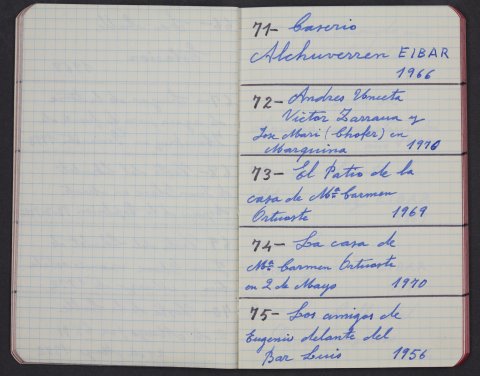 71- Caserio
Alchuverren EIBAR
1966
72- Andres Unceta
Victor Zarraua y
Jose Mari (Chofer) en
Marquina 1970
73- El Patio de la
casa de Mª Carmen
Ortuoste 1969
74- La casa de
Mª Carmen Ortuoste
en 2 de Mayo 1970
75- Los amigos de
Eugenio delante del
Bar Luis 1956